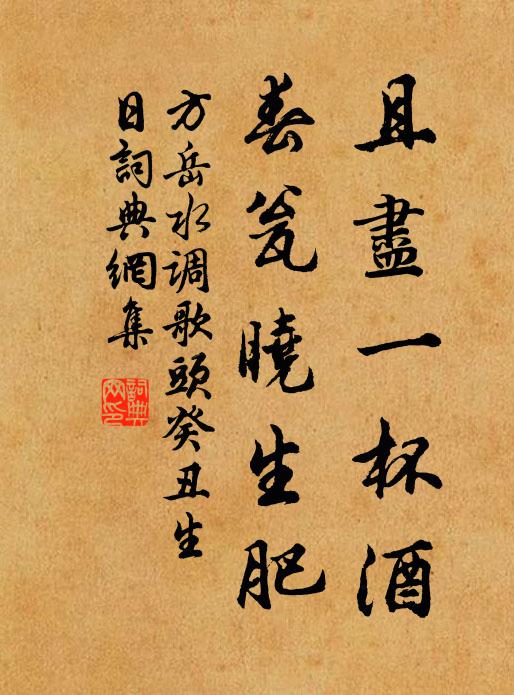 且盡一杯酒
春瓮曉生肥
方岳水调歌頭癸丑生
日詞典網集
詞典網印